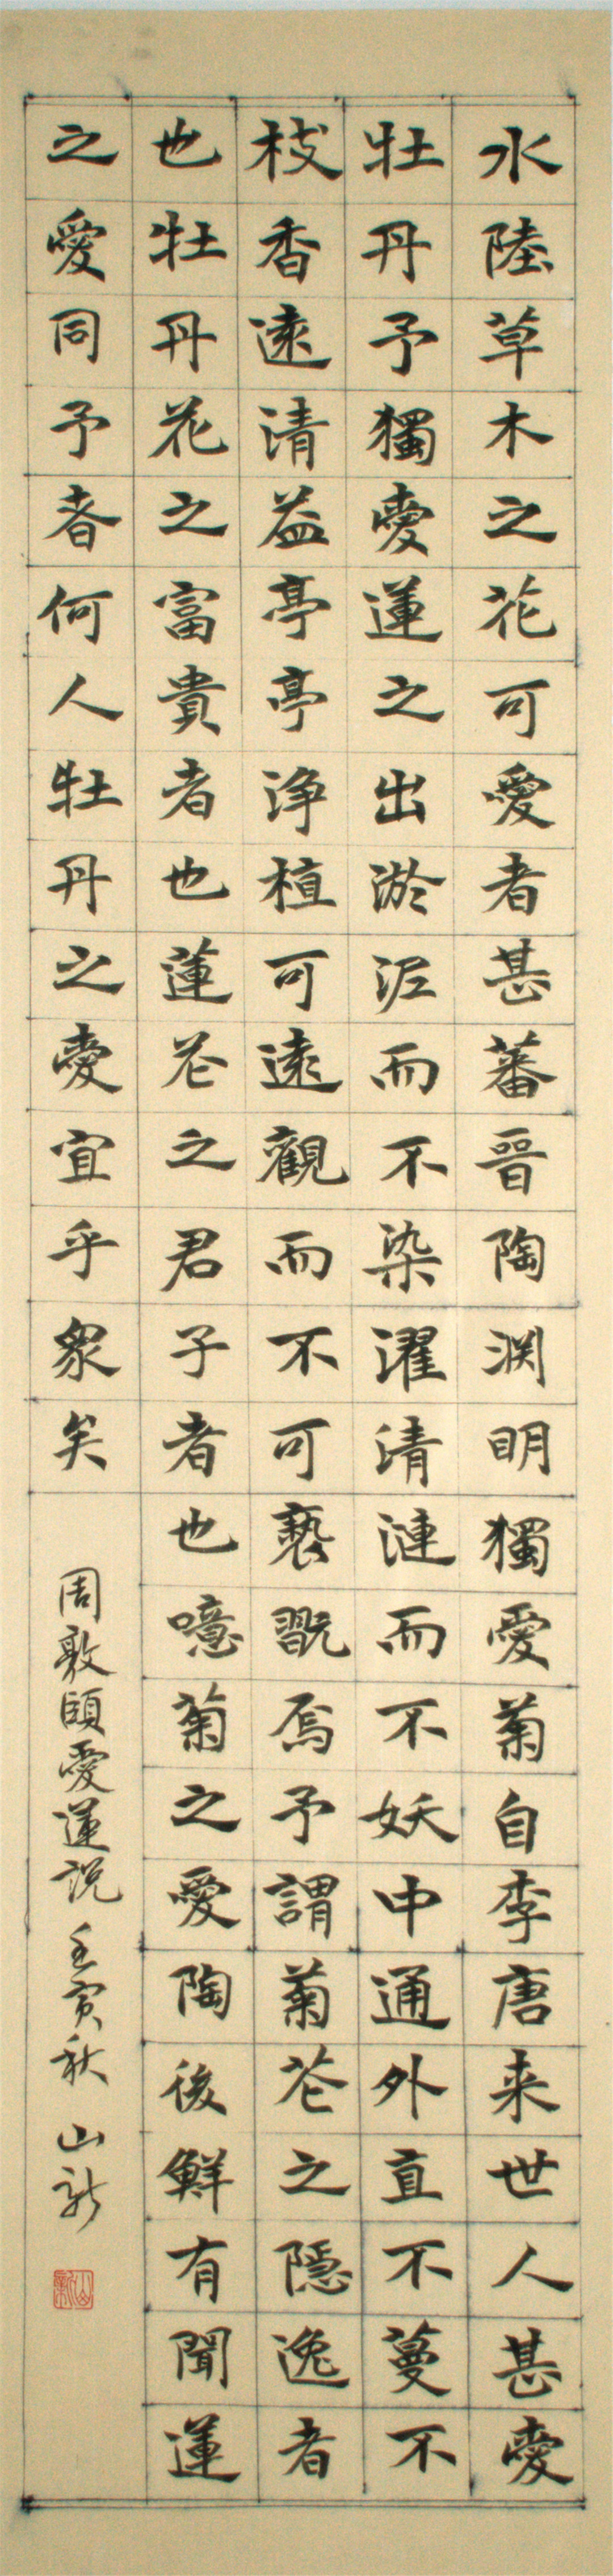 水陸草木之花可愛者甚蕃晉陶渊明獨愛菊自李唐来世人甚愛
牡丹予獨愛蓮之出淤泥而不染濯清漣而不妖中通外直不蔓不
枝香遠清益亭亭浄植可遠觀而不可褻翫焉予謂菊花之隱逸者
也牡丹花之富貴者也蓮花之君子者也噫菊之愛陶後鮮有聞蓮
之愛同予者何人牡丹之愛宜乎衆矣
周敦頤愛蓮説 壬寅秋 山新